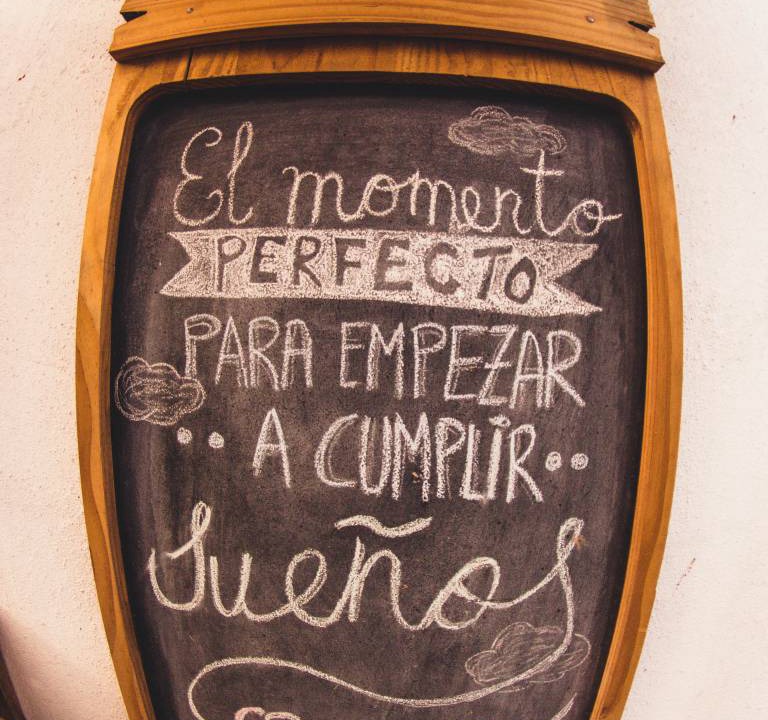 El momento
PERFECTO
PARA EMPEZAR
A CUMPLIR
Sueños